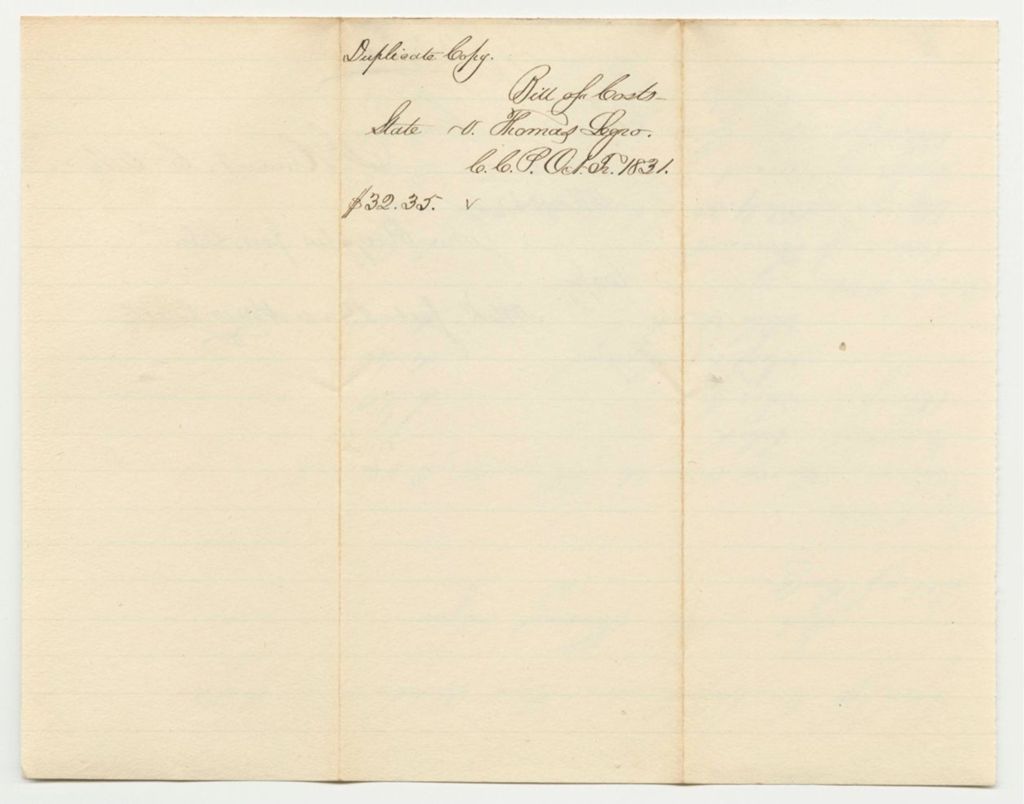 Duplicate Copy.
Bill of Costs
State v. Thomas Legro.
C.C.P. Oct. Tr. 1831.
$32.35. v